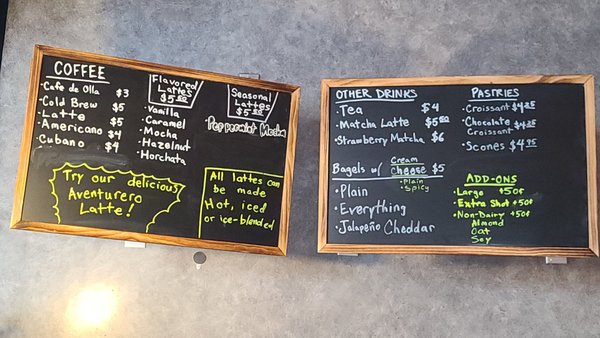 COFFEE
Cafe de Olla $3
Cold Brew $5
Latte $5
Americano $4
Cubano $4
Flavored
Lattes
$5.50
Vanilla
Caramel
Mocha
Hazelnut
Horchata
Seasonal
Lattes
$5.50
Peppermint Mocha
Try our delicious
Aventurero
Latte!
All lattes can
be made
Hot, iced
or ice-blended
OTHER DRINKS
Tea $4
Matcha Latte $5.50
Strawberry Matcha $6
Bagels w/ Cream
cheese $5
Plain
Spicy
Plain
Everything
Jalapeño Cheddar
PASTRIES
Croissant $4.25
Chocolate
Croissant $4.35
Scones $4.95
ADD-ONS
Large +50¢
Extra Shot +50¢
Non-Dairy +50¢
Almond
Oat
Soy